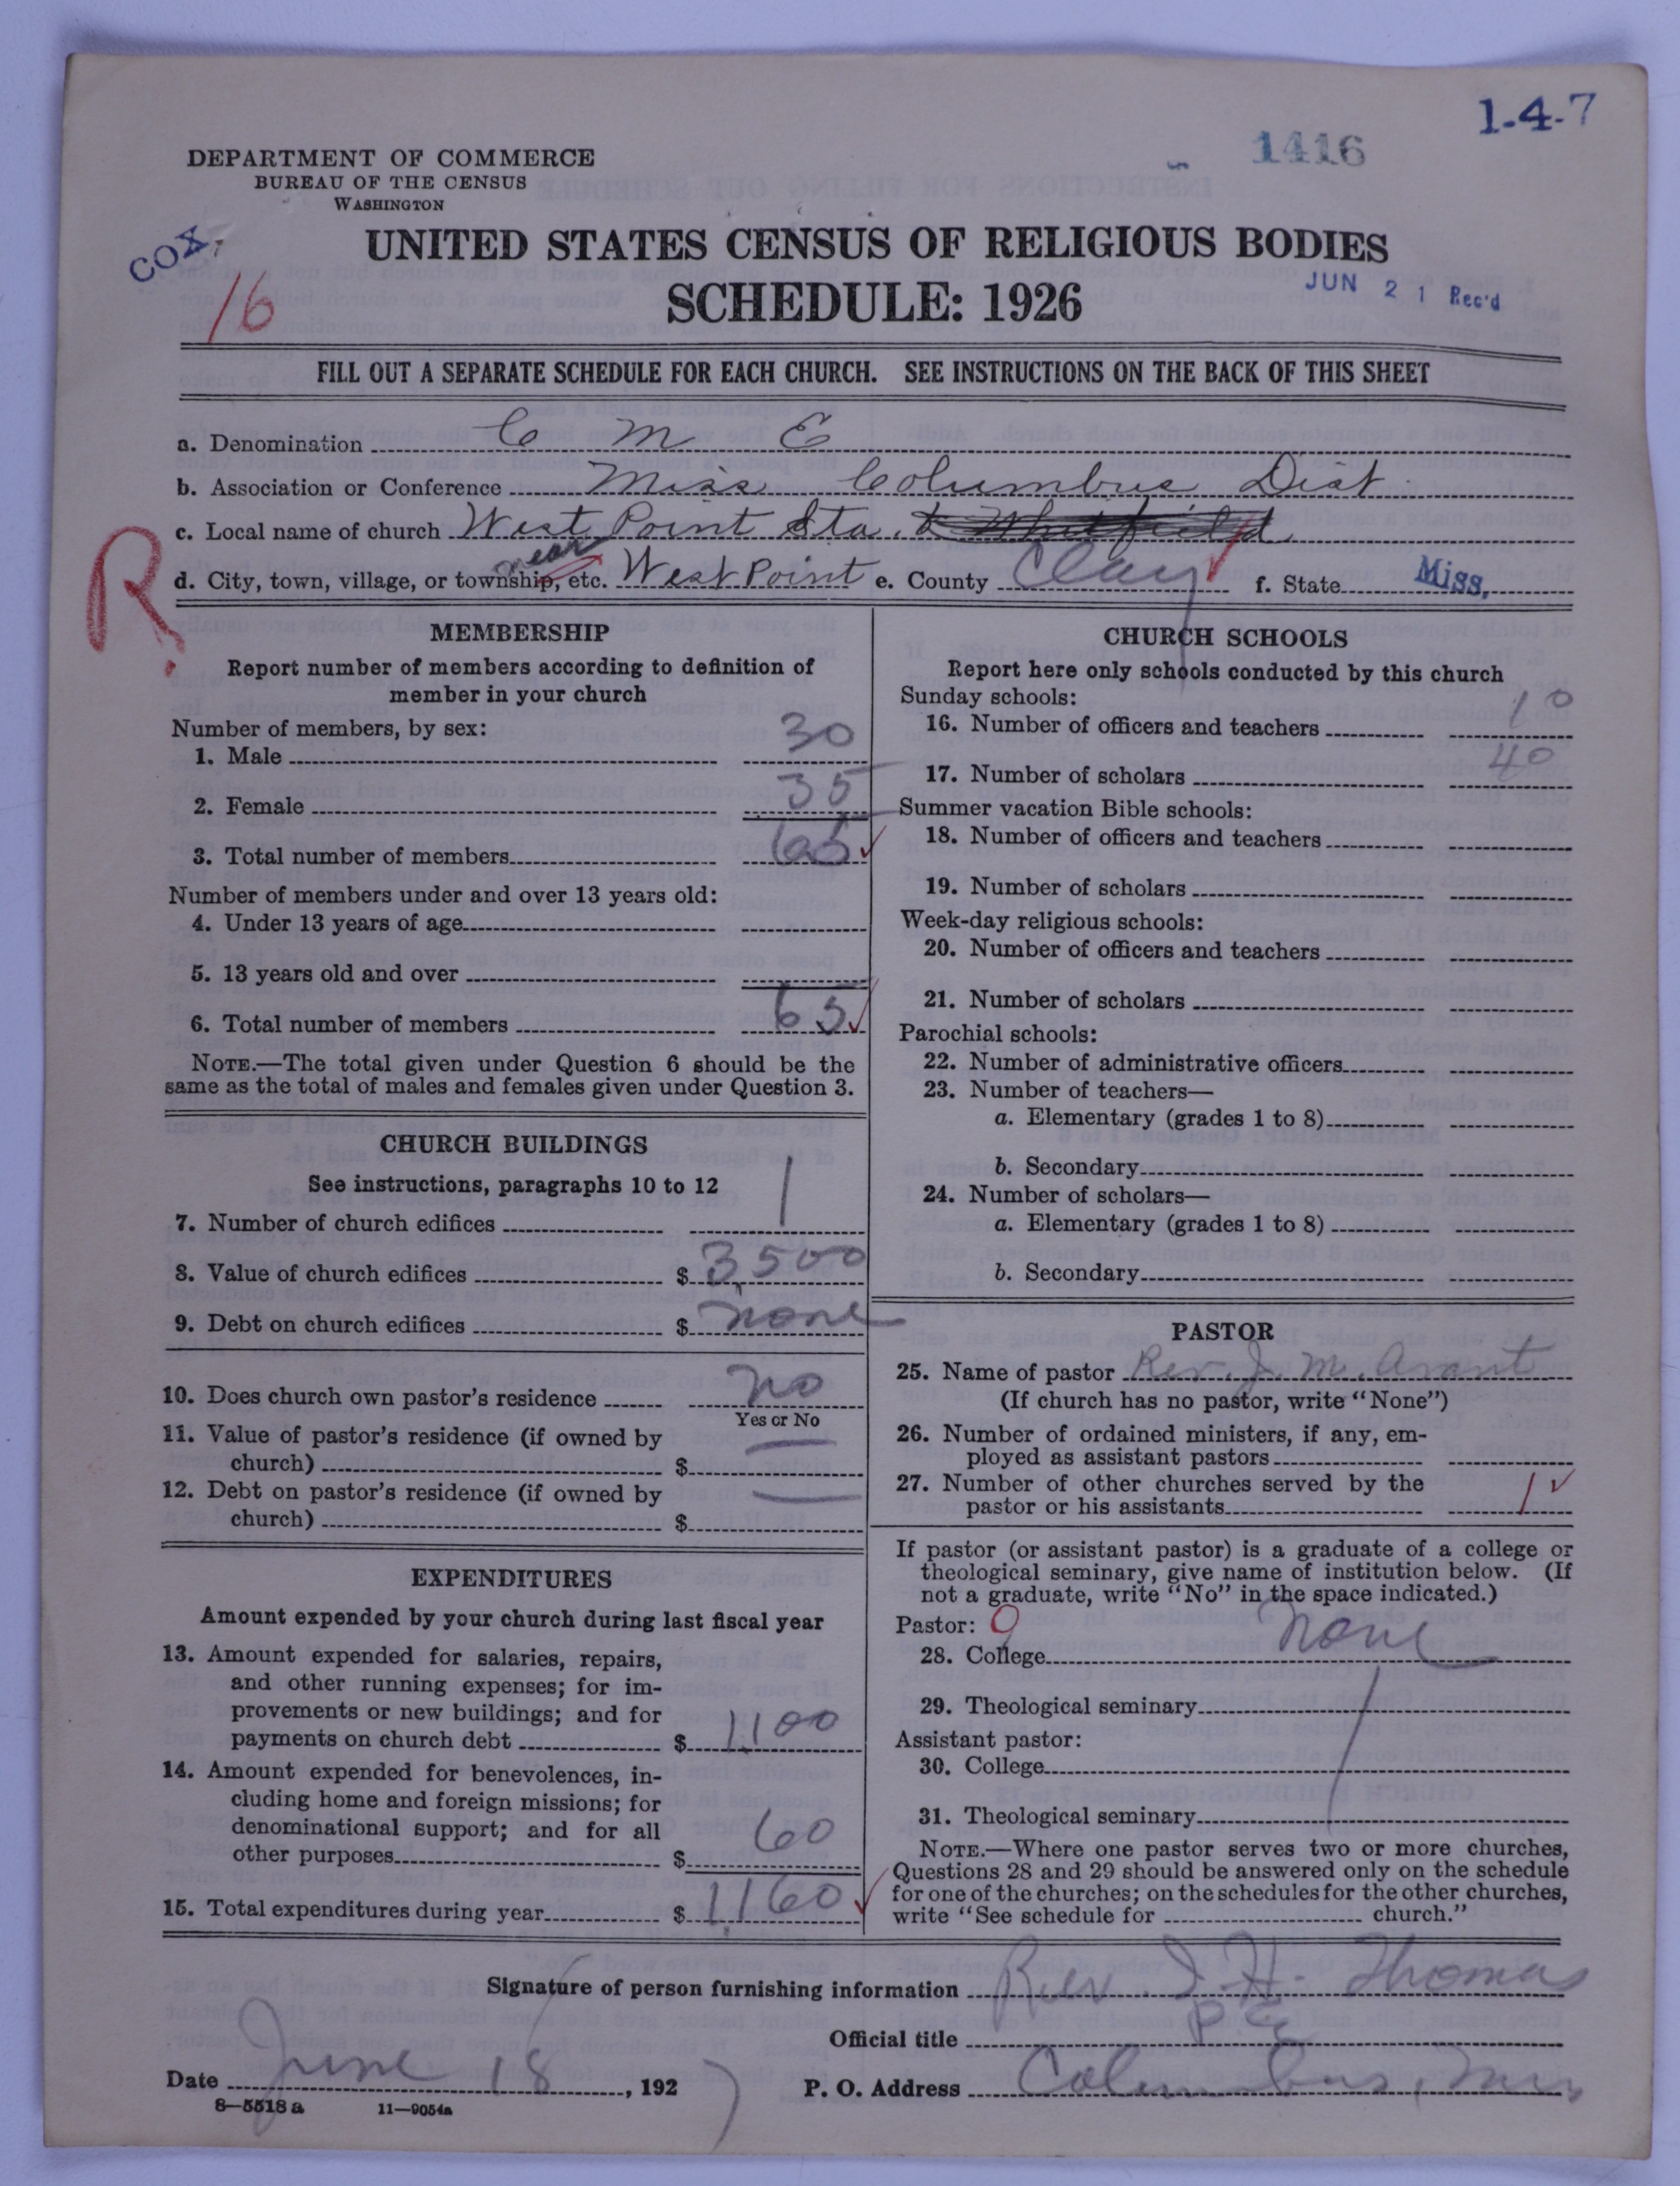 1-4-7
1416
DEPARTMENT OF COMMERCE
BUREAU OF THE CENSUS
WASHINGTON
COX,
16
UNITED STATES CENSUS OF RELIGIOUS BODIES
SCHEDULE: 1926
JUN 21 Rec'd
FILL OUT A SEPARATE SCHEDULE FOR EACH CHURCH. SEE INSTRUCTIONS ON THE BACK OF THIS SHEET
a. Denomination C M E
b. Association or Conference Miss Columbus Dist
c. Local name of church West Point Sta. & Whitfield
near
d. City, town, village, or township, etc. West Point e. County Clay f. State Miss.
R
MEMBERSHIP
Report number of members according to definition of
member in your church
Number of members, by sex:
1. Male 30
2. Female 35
3. Total number of members 65
Number of members under and over 13 years old:
4. Under 13 years of age
5. 13 years old and over
6. Total number of members 65
NOTE.—The total given under Question 6 should be the
same as the total of males and females given under Question 3.
CHURCH BUILDINGS
See instructions, paragraphs 10 to 12
7. Number of church edifices 1
8. Value of church edifices $ 3,500
9. Debt on church edifices $ none
10. Does church own pastor's residence no
Yes or No
11. Value of pastor's residence (if owned by
church) $ —
12. Debt on pastor's residence (if owned by
church) $ —
EXPENDITURES
Amount expended by your church during last fiscal year
13. Amount expended for salaries, repairs,
and other running expenses; for im-
provements or new buildings; and for
payments on church debt $ 1,100
14. Amount expended for benevolences, in-
cluding home and foreign missions; for
denominational support; and for all
other purposes $ 60
15. Total expenditures during year $ 1,160
CHURCH SCHOOLS
Report here only schools conducted by this church
Sunday schools:
16. Number of officers and teachers 10
17. Number of scholars 40
Summer vacation Bible schools:
18. Number of officers and teachers
19. Number of scholars
Week-day religious schools:
20. Number of officers and teachers
21. Number of scholars
Parochial schools:
22. Number of administrative officers
23. Number of teachers—
a. Elementary (grades 1 to 8)
b. Secondary
24. Number of scholars—
a. Elementary (grades 1 to 8)
b. Secondary
PASTOR
25. Name of pastor Rev. J. M. Avant
(If church has no pastor, write "None")
26. Number of ordained ministers, if any, em-
ployed as assistant pastors
27. Number of other churches served by the
pastor or his assistants 1
If pastor (or assistant pastor) is a graduate of a college or
theological seminary, give name of institution below. (If
not a graduate, write "No" in the space indicated.)
Pastor: 9
28. College none
29. Theological seminary
Assistant pastor:
30. College
31. Theological seminary
NOTE.—Where one pastor serves two or more churches,
Questions 28 and 29 should be answered only on the schedule
for one of the churches; on the schedules for the other churches,
write "See schedule for church."
Signature of person furnishing information Rev. J. H. Thomas
Official title P. E.
Date June 18, 1927 P. O. Address Columbus, Miss
8—5518 a 11—9054a